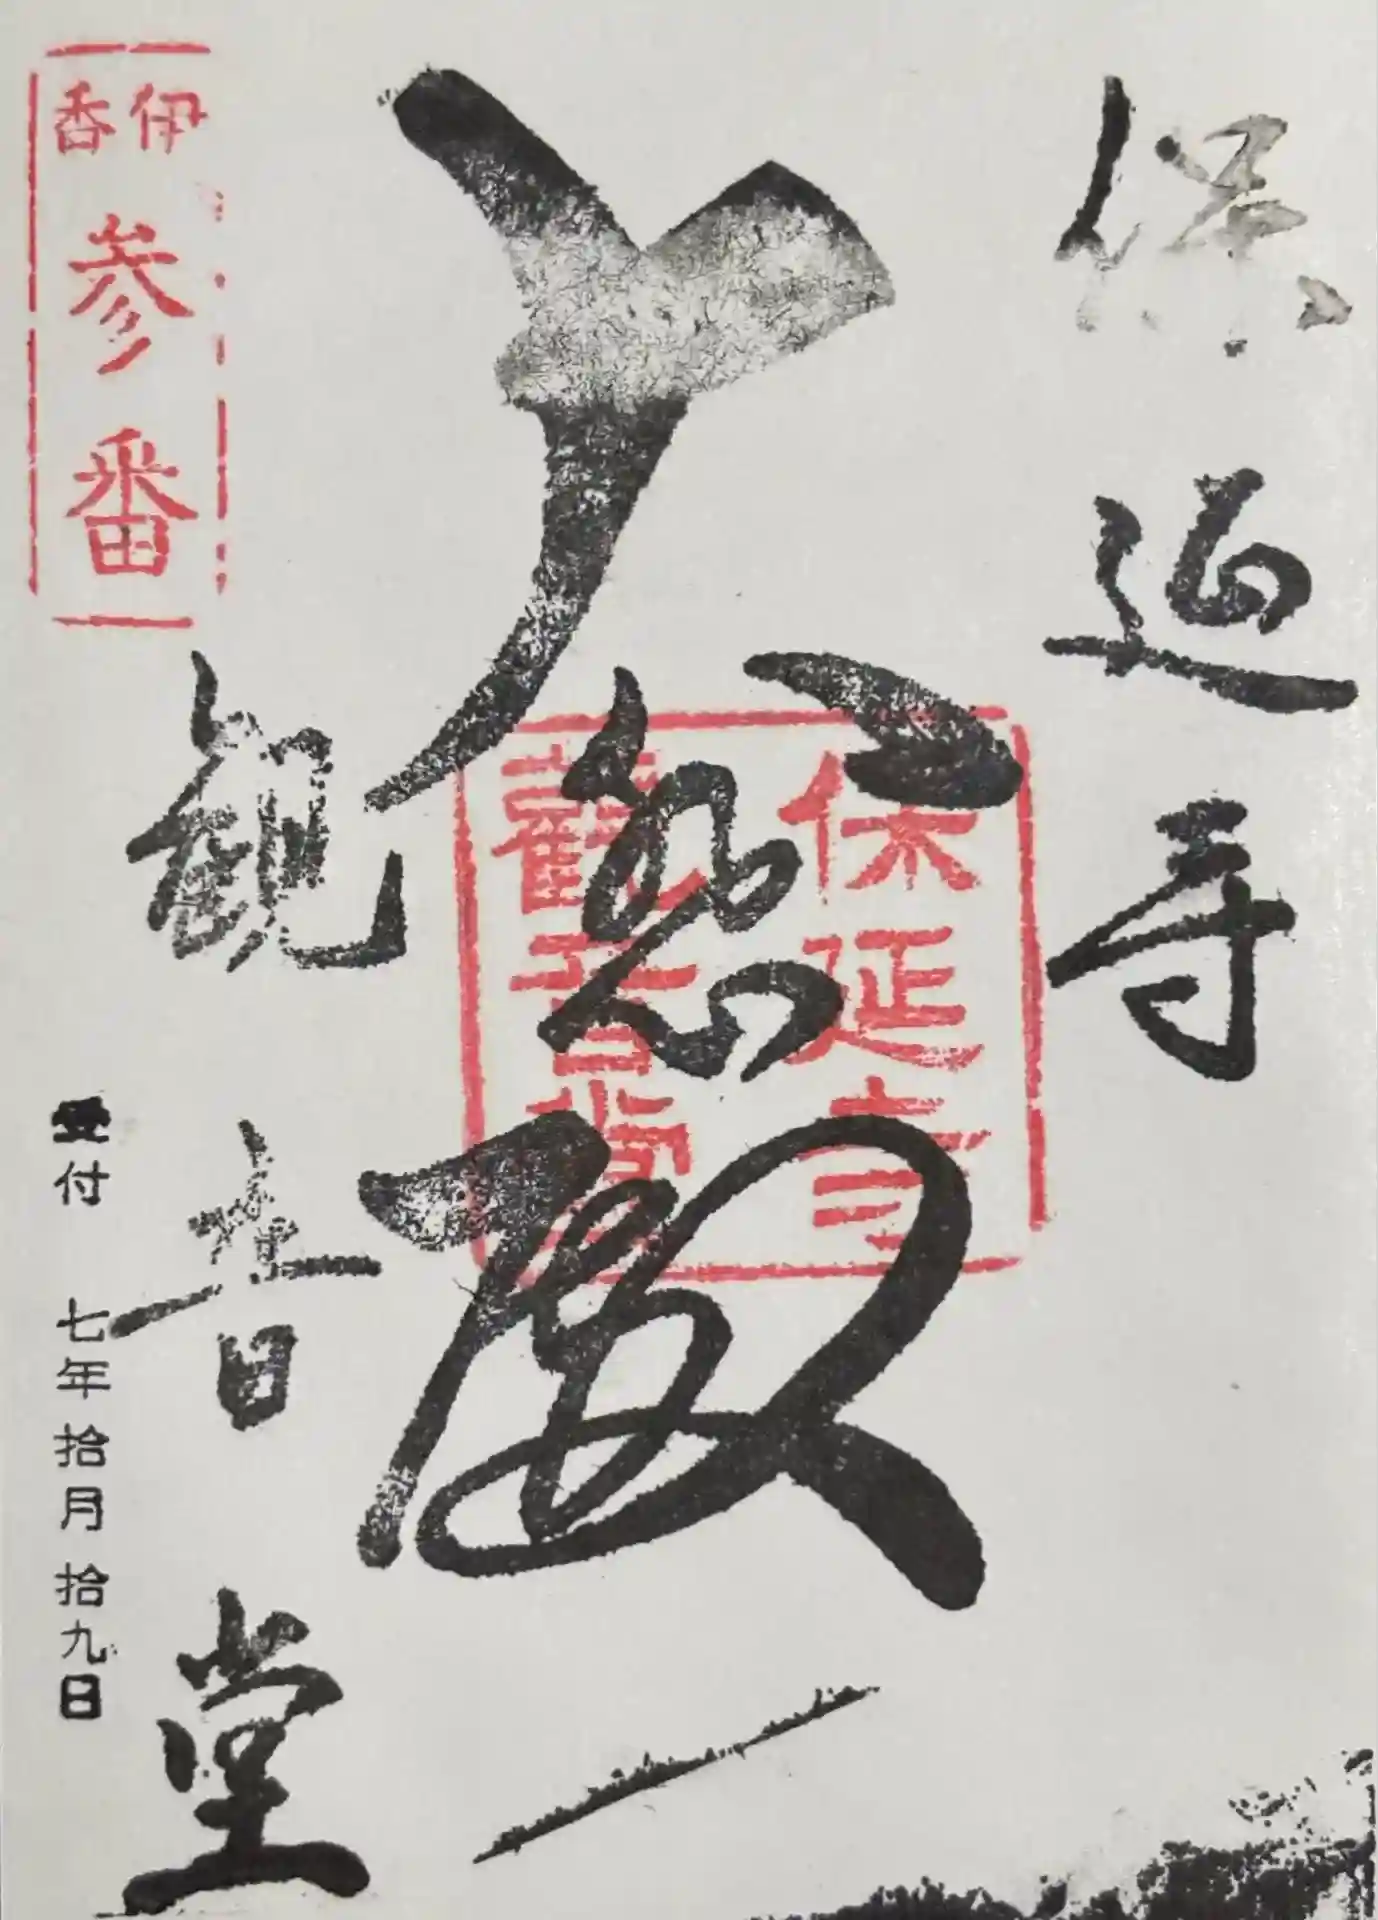 保延寺
大悲殿
観音堂
保延寺
觀音堂
伊香
参番
受付 七年拾月拾九日